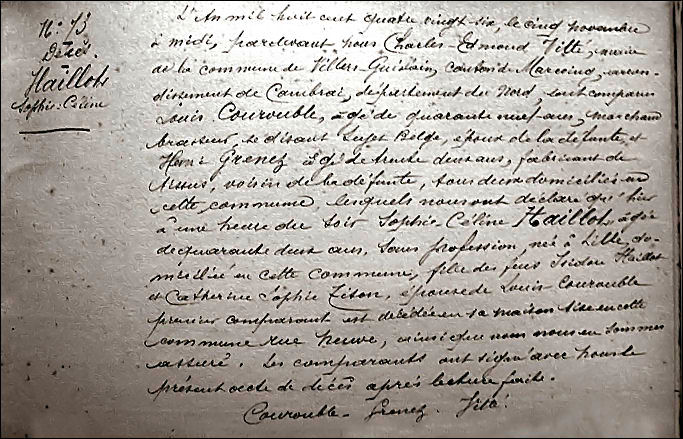 N° 73
Décès
Haillot
Sophie-Céline
L'An mil huit cent quatre vingt six, le cinq novembre
à midi, pardevant nous Charles Edmond Ville, maire
de la commune de Villers-Guislain, canton de Marcoing, arron-
dissement de Cambrai, département du Nord, sont comparus
Louis Courouble, âgé de quarante neuf ans, marchand
brasseur, se disant Sujet Belge, époux de la défunte, et
Henri Grenez âgé de trente deux ans, fabricant de
tissus, voisin de la défunte, tous deux domiciliés en
cette commune lesquels nous ont déclaré que hier
à une heure du soir Sophie-Céline Haillot âgée
de quarante deux ans, sans profession, née à Lille, do-
miciliée en cette commune, fille des feus Isidore Haillot
et Catherine Sophie Tison, épouse de Louis Courouble
premier comparant est décédée en sa maison sise en cette
commune rue neuve, ainsi que nous nous en sommes
assuré. Les comparants ont signé avec nous le
présent acte de décès après lecture faite.
Courouble - Grenez.